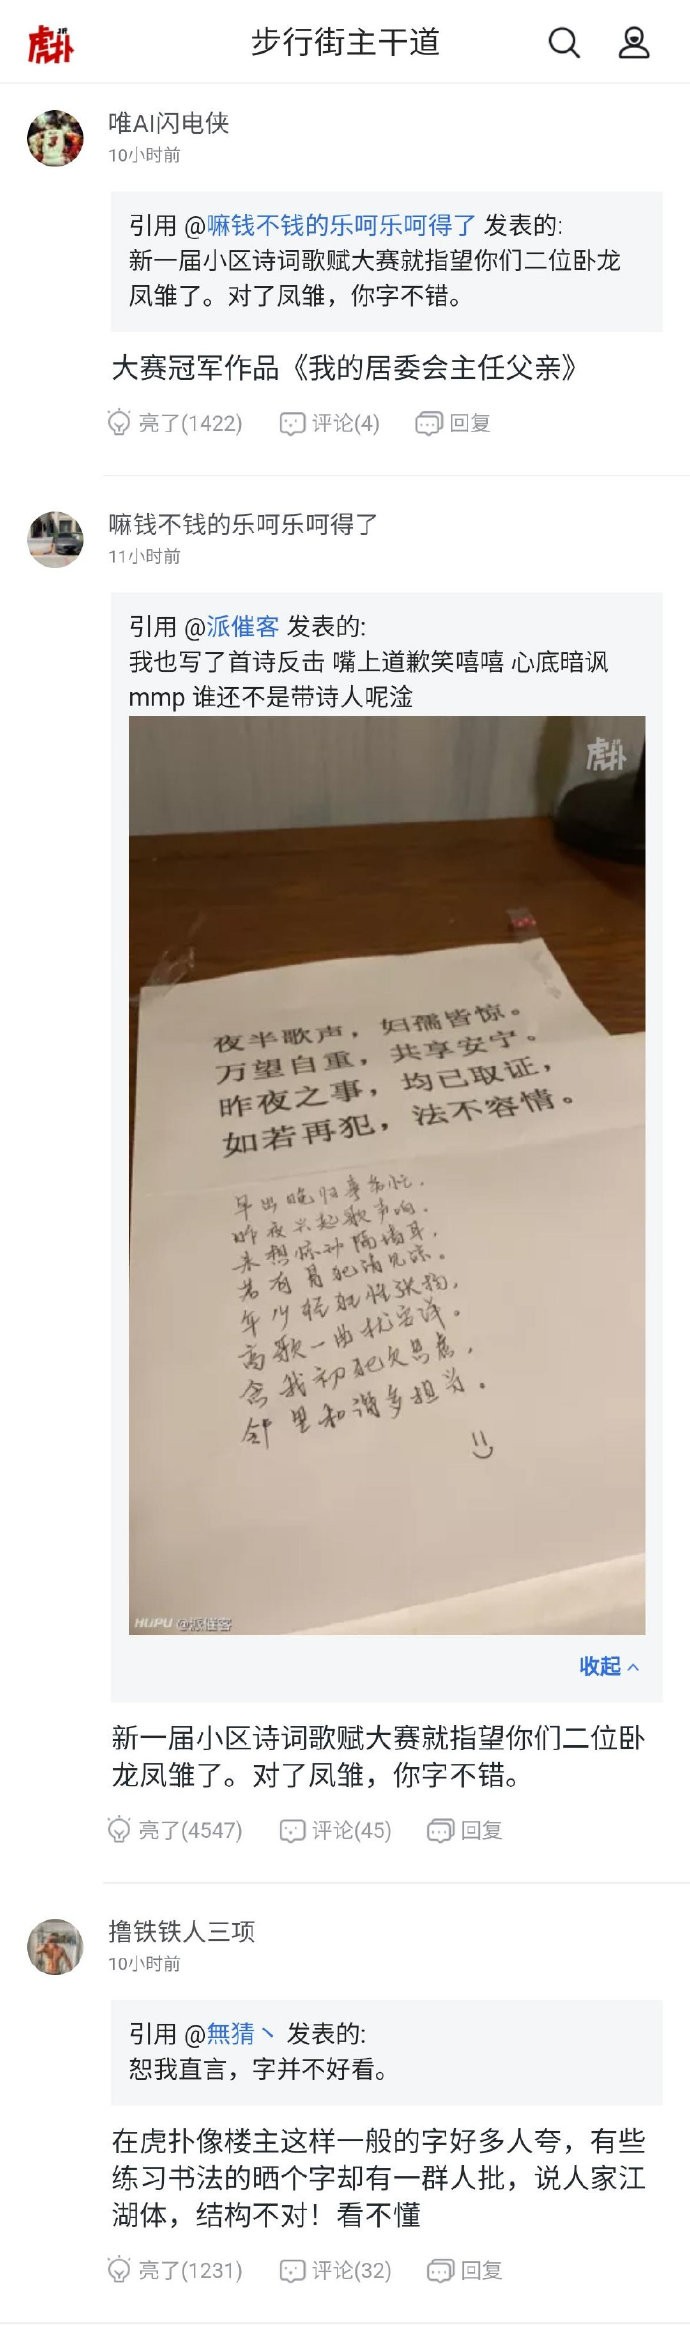 虎扑
步行街主干道
唯AI闪电侠
10小时前
引用 @嘛钱不钱的乐呵乐呵得了 发表的:
新一届小区诗词歌赋大赛就指望你们二位卧龙
凤雏了。对了凤雏，你字不错。
大赛冠军作品《我的居委会主任父亲》
亮了(1422) 评论(4) 回复
嘛钱不钱的乐呵乐呵得了
11小时前
引用 @派催客 发表的:
我也写了首诗反击 嘴上道歉笑嘻嘻 心底暗讽
mmp 谁还不是带诗人呢淦
虎扑
夜半歌声，妇孺皆惊。
万望自重，共享安宁。
昨夜之事，均已取证，
如若再犯，法不容情。
早出晚归事务忙，
昨夜兴起歌声响。
未想惊扰隔墙耳，
若有冒犯请见谅。
年少轻狂性张扬，
高歌一曲扰安详。
念我初犯欠思虑，
邻里和谐多担当。
HUPU @派催客
收起
新一届小区诗词歌赋大赛就指望你们二位卧
龙凤雏了。对了凤雏，你字不错。
亮了(4547) 评论(45) 回复
撸铁铁人三项
10小时前
引用 @無猜丶 发表的:
恕我直言，字并不好看。
在虎扑像楼主这样一般的字好多人夸，有些
练习书法的晒个字却有一群人批，说人家江
湖体，结构不对！看不懂
亮了(1231) 评论(32) 回复